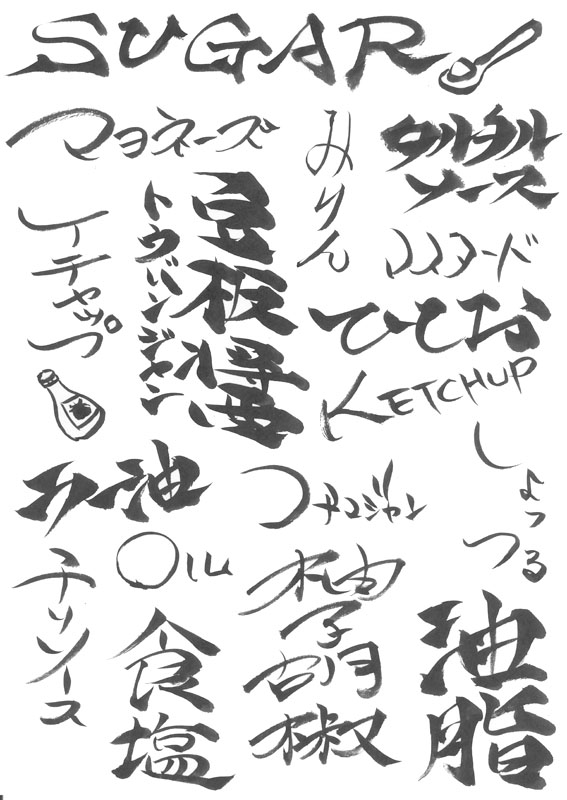 SUGAR
マヨネーズ
みりん
タルタル
ソース
豆板醤
トウバンジャン
ケチャップ
マスタード
ひしお
KETCHUP
しょっつる
ラー油
コチュジャン
OIL
チリソース
食塩
柚子胡椒
油脂